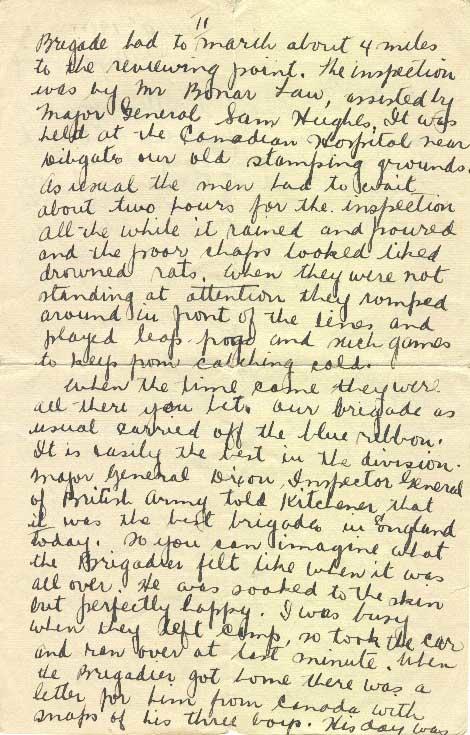 11
Brigade had to march about 4 miles
to the reviewing point. The inspection
was by Mr Bonar Law, assisted by
Major General Sam Hughes. It was
held at the Canadian Hospital near
Dibgate our old stamping grounds.
As usual the men had to wait
about two hours for the inspection
all the while it rained and poured
and the poor chaps looked liked
drowned rats. When they were not
standing at attention they romped
around in front of the lines and
played leap frog and such games
to keep from catching cold.
When the time came they were
all there you bet. Our brigade as
usual carried off the blue ribbon.
It is easily the best in the division.
Major General Dixon, Inspector General
of British Army told Kitchener that
it was the best brigade in England
today. So you can imagine what
the Brigadier felt like when it was
all over. He was soaked to the skin
but perfectly happy. I was busy
when they left camp, so took the car
and ran over at last minute. When
the Brigadier got home there was a
letter for him from Canada with
snaps of his three boys. His day was